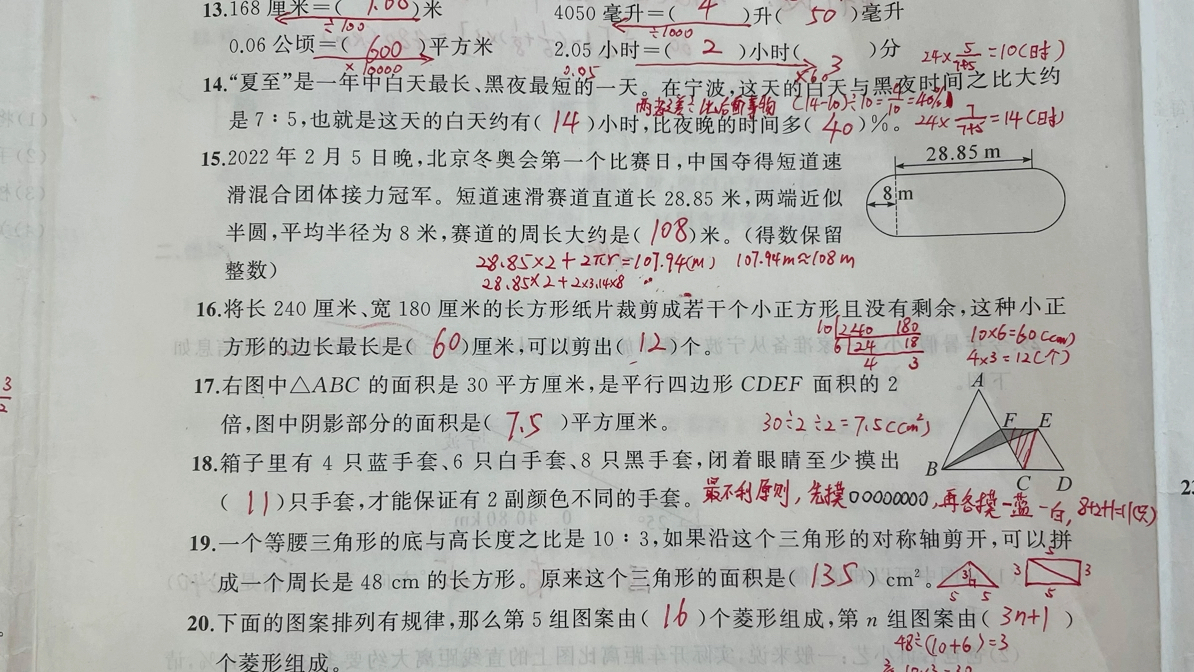 13.168 厘米=( 1.68 )米 4050 毫升=( 4 )升( 50 )毫升
÷100 ÷1000
0.06 公顷=( 600 )平方米 2.05 小时=( 2 )小时( )分 24×5/(7+5)=10(时)
×10000 0.05 ×60 3
14.“夏至”是一年中白天最长、黑夜最短的一天。在宁波,这天的白天与黑夜时间之比大约
(14-10)÷10=4/10=40%
是 7∶5,也就是这天的白天约有( 14 )小时,比夜晚的时间多( 40 )%。 24×7/(7+5)=14(时)
15.2022 年 2 月 5 日晚,北京冬奥会第一个比赛日,中国夺得短道速 28.85 m
滑混合团体接力冠军。短道速滑赛道直道长 28.85 米,两端近似 8 m
半圆,平均半径为 8 米,赛道的周长大约是( 108 )米。(得数保留
整数) 28.85×2+2πr=107.94(m) 107.94m≈108m
28.85×2+2×3.14×8
16.将长 240 厘米、宽 180 厘米的长方形纸片裁剪成若干个小正方形且没有剩余,这种小正
10 240 180 10×6=60(cm)
方形的边长最长是( 60 )厘米,可以剪出( 12 )个。 6 24 18 4×3=12(个)
4 3
17.右图中△ABC 的面积是 30 平方厘米,是平行四边形 CDEF 面积的 2 A
倍,图中阴影部分的面积是( 7.5 )平方厘米。 30÷2÷2=7.5(cm²) F E
18.箱子里有 4 只蓝手套、6 只白手套、8 只黑手套,闭着眼睛至少摸出 B C D
( 11 )只手套,才能保证有 2 副颜色不同的手套。 最不利原则,先摸00000000,再各摸一蓝一白, 8+2+1=11(只)
19.一个等腰三角形的底与高长度之比是 10∶3,如果沿这个三角形的对称轴剪开,可以拼
成一个周长是 48 cm 的长方形。原来这个三角形的面积是( 135 ) cm²。 3 5 5 3 5 3 5
20.下面的图案排列有规律,那么第 5 组图案由( 16 )个菱形组成,第 n 组图案由( 3n+1 )
个菱形组成。 48÷(10+6)=3